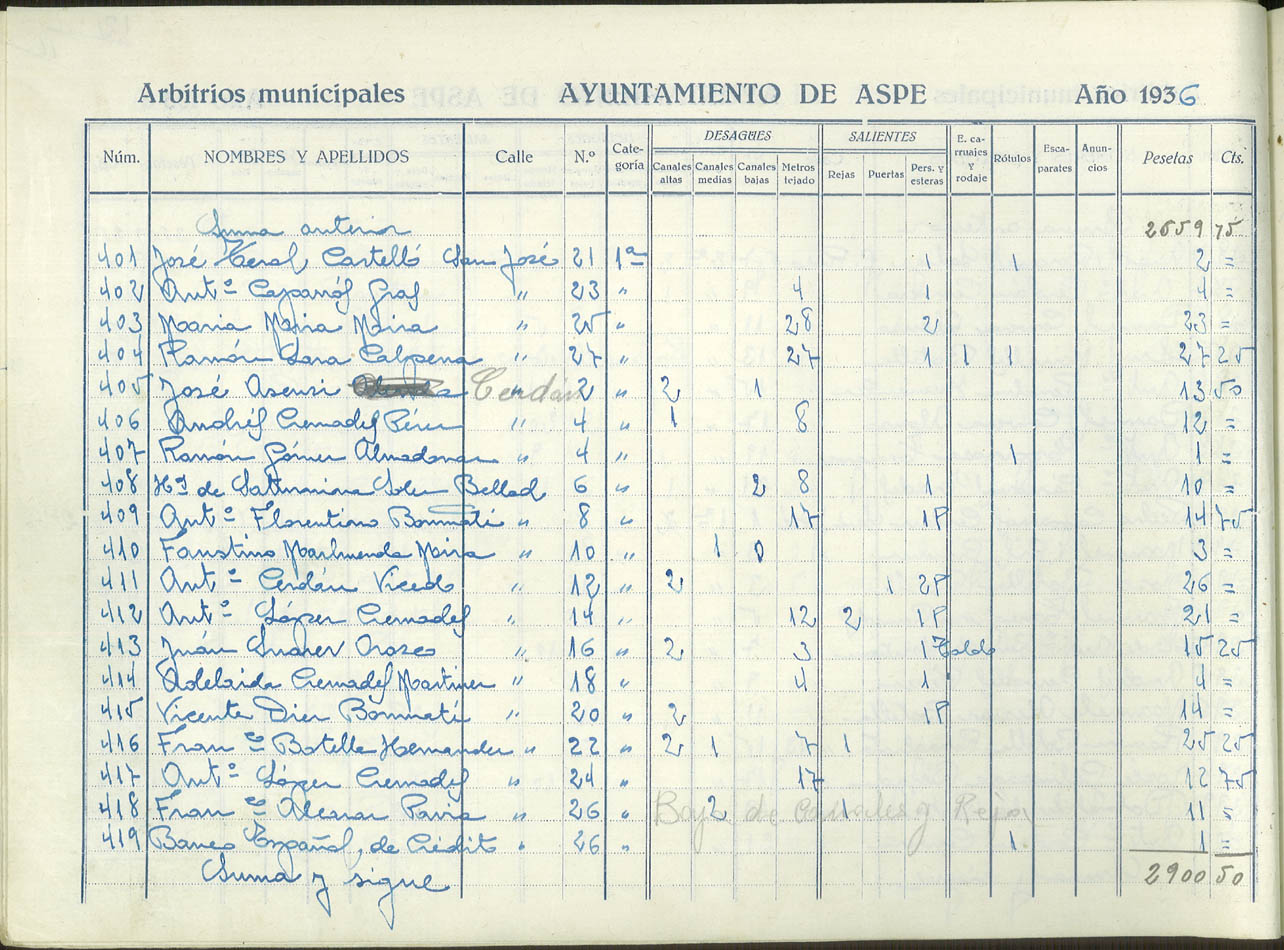 Arbitrios municipales AYUNTAMIENTO DE ASPE Año 1936
Núm. NOMBRES Y APELLIDOS Calle N.º Categoría DESAGÜES Canales altas Canales medias Canales bajas Metros tejado SALIENTES Rejas Puertas Pers. y esteras E. carruajes y rodaje Rótulos Escaparates Anuncios Pesetas Cts.
Suma anterior 2659 75
401 José Castelló San José 21 1ª 1 1 2 =
402 Antº 23 " 4 1 4 =
403 Maria Mira Mira " 25 " 28 2 23 =
404 Ramón Calpena " 27 " 27 1 1 1 27 25
405 José Asensi Cerdán " 2 " 2 1 13 50
406 Andrés Cremades Pérez " 4 " 1 8 12 =
407 Ramón Gómez Almodovar " 4 " 1 1 =
408 Hos de Saturnina Soler Bellod 6 " 2 8 1 10 =
409 Antº Florentino Bonmatí " 8 " 17 1P 14 75
410 Faustino Marhuenda Mira " 10 " 1 0 3 =
411 Antº Cerdán Vicedo " 12 " 2 1 2P 26 =
412 Antº López Cremades " 14 " 12 2 1P 21 =
413 Juán Suárez Orozco " 16 " 2 3 1 Toldo 15 25
414 Adelaida Cremades Martinez " 18 " 4 1 4 =
415 Vicente Diez Bonmatí " 20 " 2 1P 14 =
416 Franco Botella Hernandez " 22 " 2 1 7 1 25 25
417 Antº López Cremades " 24 " 17 12 75
418 Franco Alcaraz Pavia " 26 " Baja de canales y Reja 2 1 11 =
419 Banco Español de Crédito " 26 " 1 1 =
Suma y sigue 2900 50